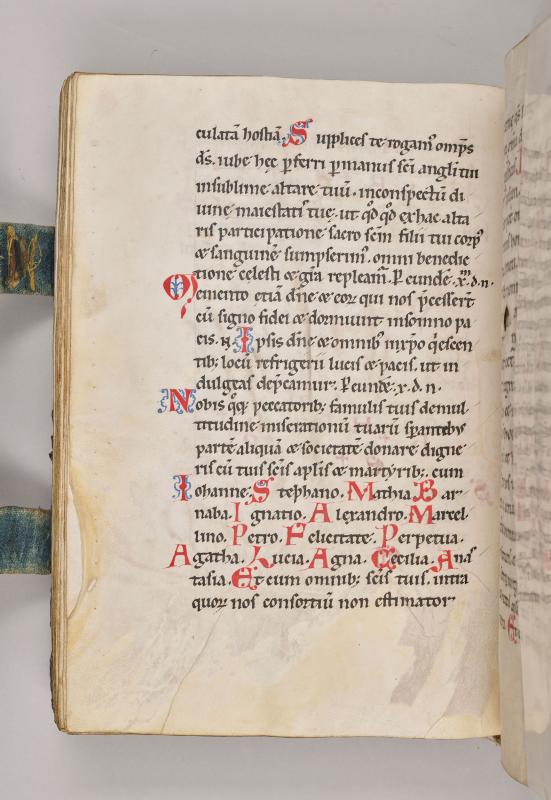 culatā hostiā. Supplices te rogam᷒ omp̄s
d̄s. iube hec ꝑferri ꝑmanus sc̄i angli tui
insublime altare tuū. inconspectū di
uine maiestatis tue. ut q̄d q̄d ex hac alta
ris participatione sacro sc̄m filii tui corp᷒
& sanguinē sumpserim᷒. omni benedic
tione celesti & grā repleam̄. P̄ eundē. xp̄m. d. n.
Memento etiā dn̄e & eoꝝ qui nos p̄cessert̄
cū signo fidei & dormiunt insomno pa
cis. N. Ipsis dn̄e & omnib᷒ inxp̄o q̄escen
tib; locū refrigerii lucis & pacis. ut in
dulgeas dep̄camur. P̄ eundē. x. d. n.
Nobis q̄q; peccatorib; famulis tuis demul
titudine miserationū tuarū sperantib᷒
partē aliquā & societatē donare digne
ris cū tuis sc̄is ap̄lis & martyrib;. cum
Iohanne. Stephano. Mathia. Bar
naba. Ignatio. Alexandro. Marcel
lino. Petro. Felicitate. Perpetua.
Agatha. Lucia. Agna. Cecilia. Anas
tasia. Et cum omnib; sc̄is tuis. intra
quoꝝ nos consortiū non estimator